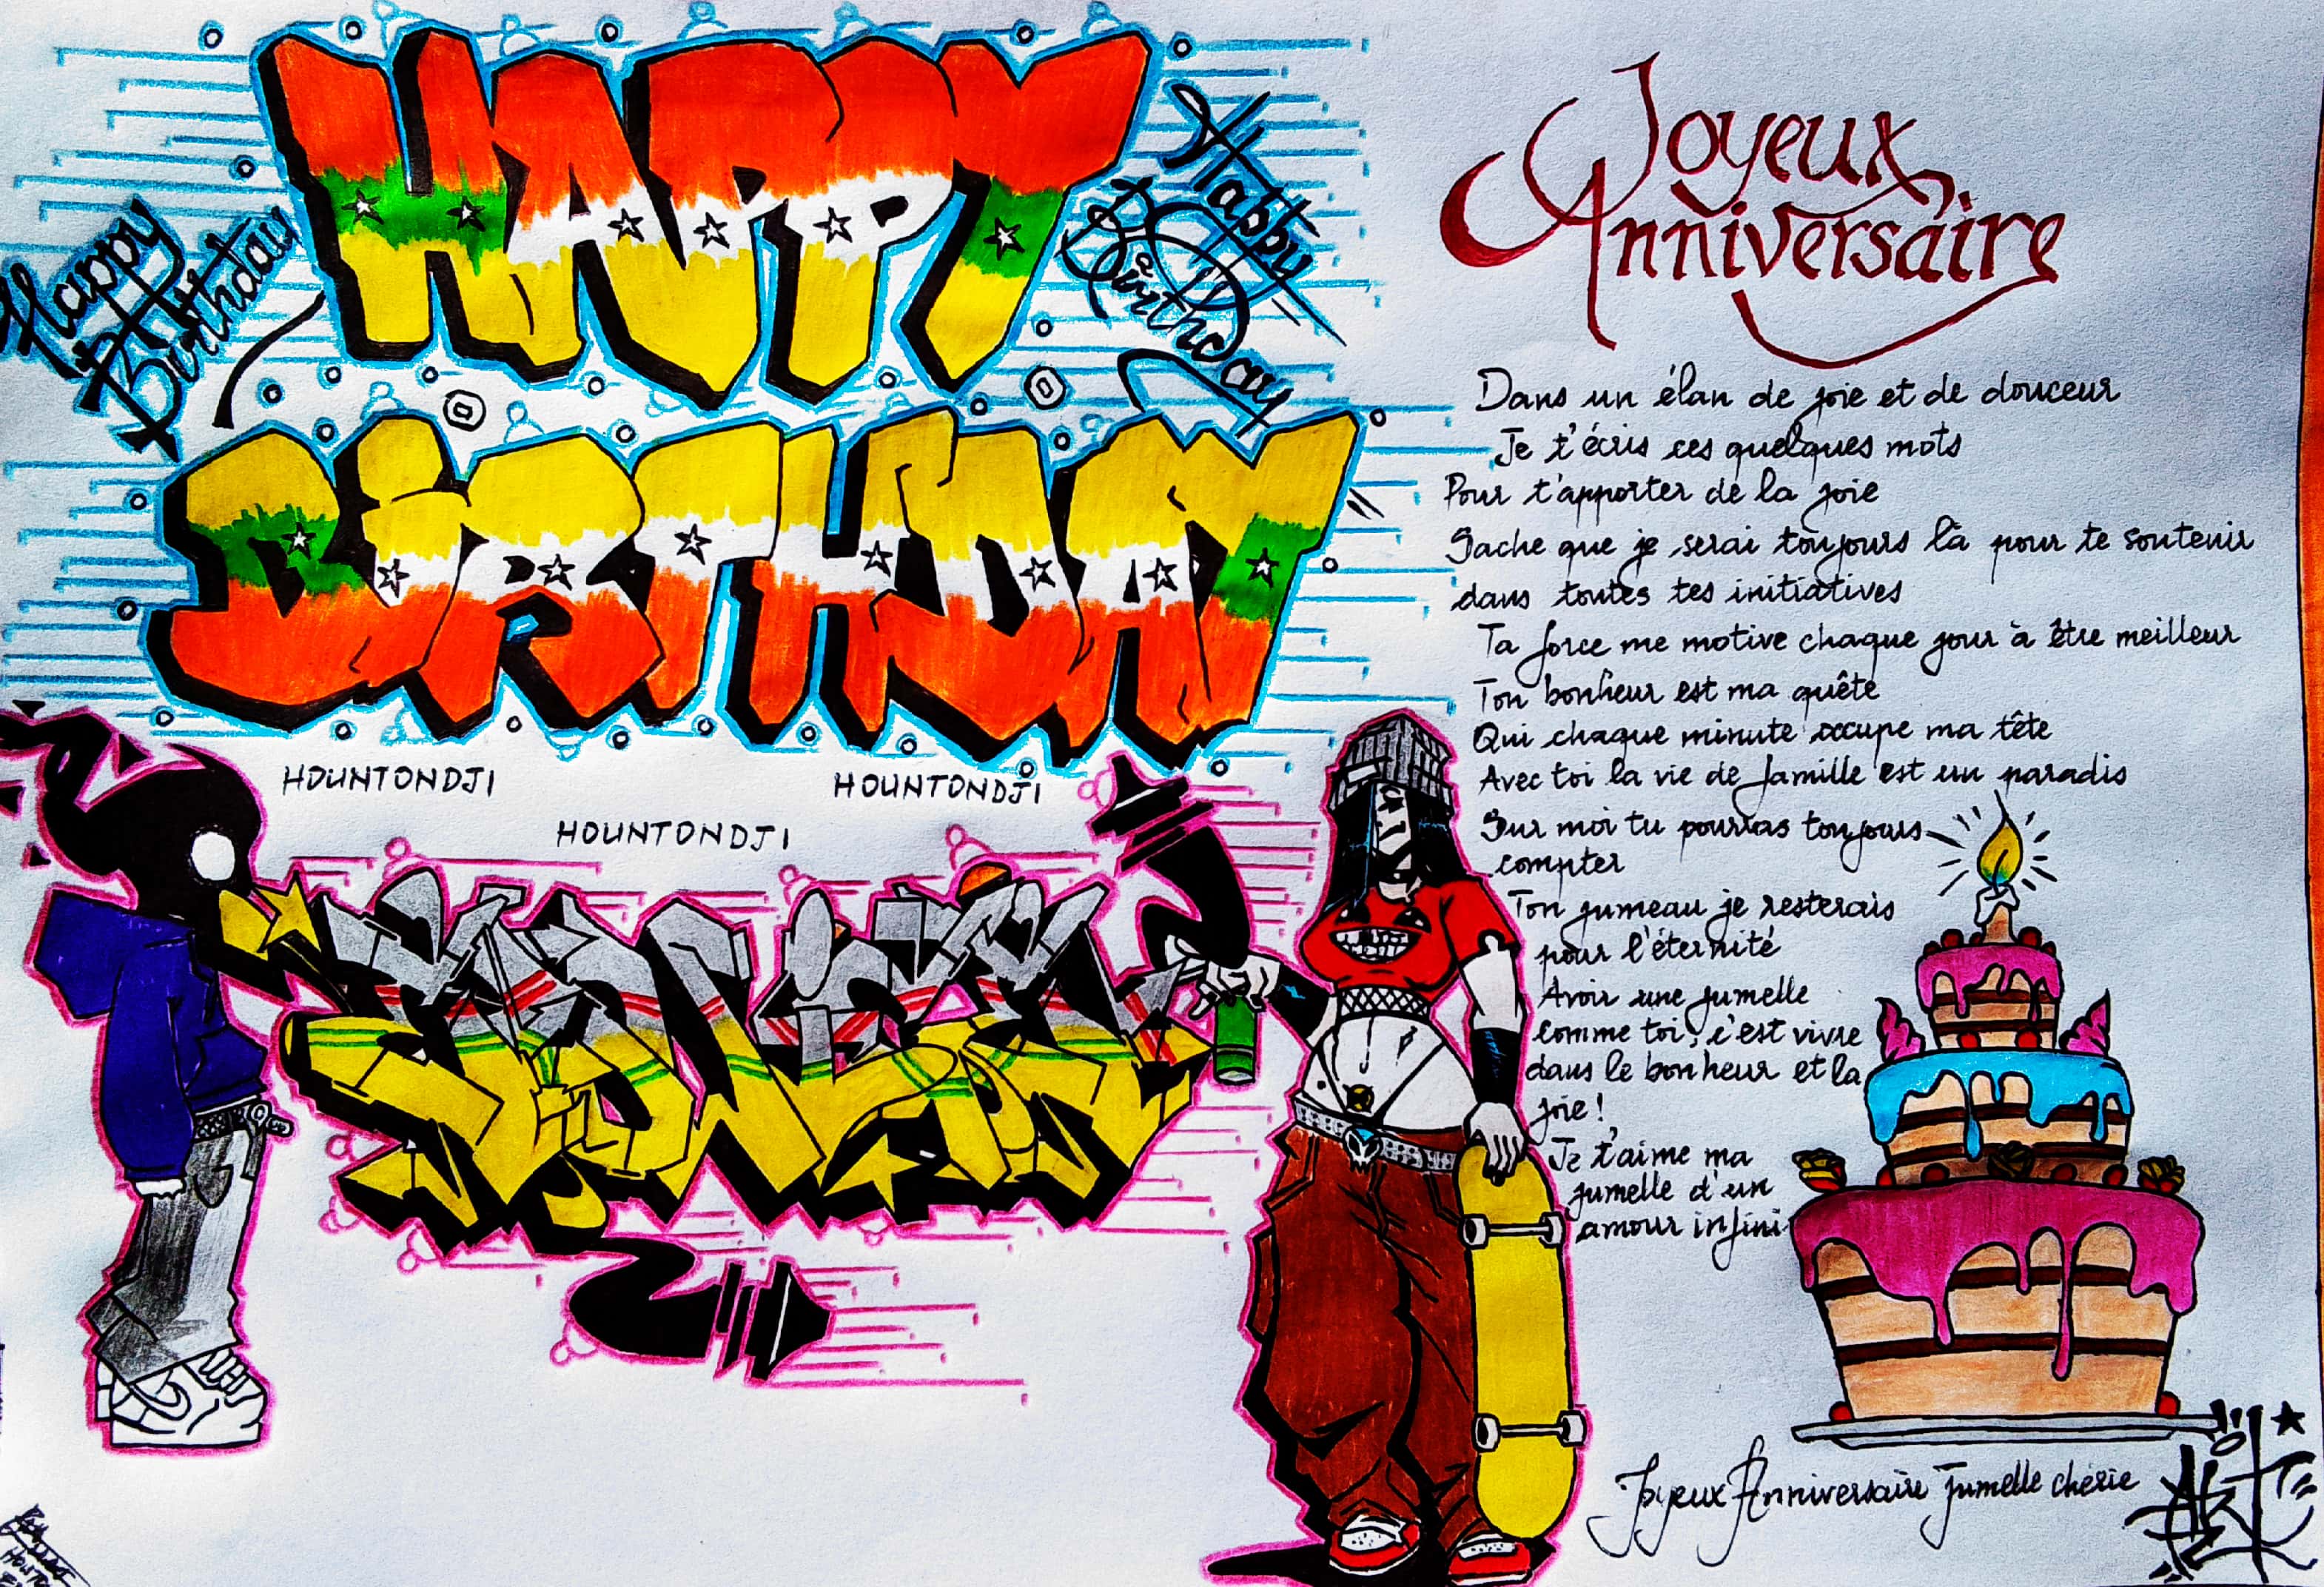 HAPPY
BiRTHDAY
Happy
Birthday
Happy
Birthday
HOUNTONDJI
HOUNTONDJI
HOUNTONDJI
Joyeux
Anniversaire
Dans un élan de joie et de douceur
Je t'écris ces quelques mots
Pour t'apporter de la joie
Sache que je serai toujours là pour te soutenir
dans toutes tes initiatives
Ta force me motive chaque jour à être meilleur
Ton bonheur est ma quête
Qui chaque minute occupe ma tête
Avec toi la vie de famille est un paradis
Sur moi tu pourras toujours
compter
Ton jumeau je resterais
pour l'éternité
Avoir une jumelle
comme toi, c'est vivre
dans le bonheur et la
joie !
Je t'aime ma
jumelle d'un
amour infini
Joyeux Anniversaire Jumelle chérie